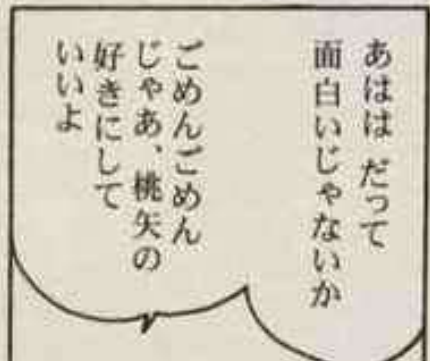 あはは だって
面白いじゃないか
ごめんごめん
じゃあ、桃矢の
好きにして
いいよ